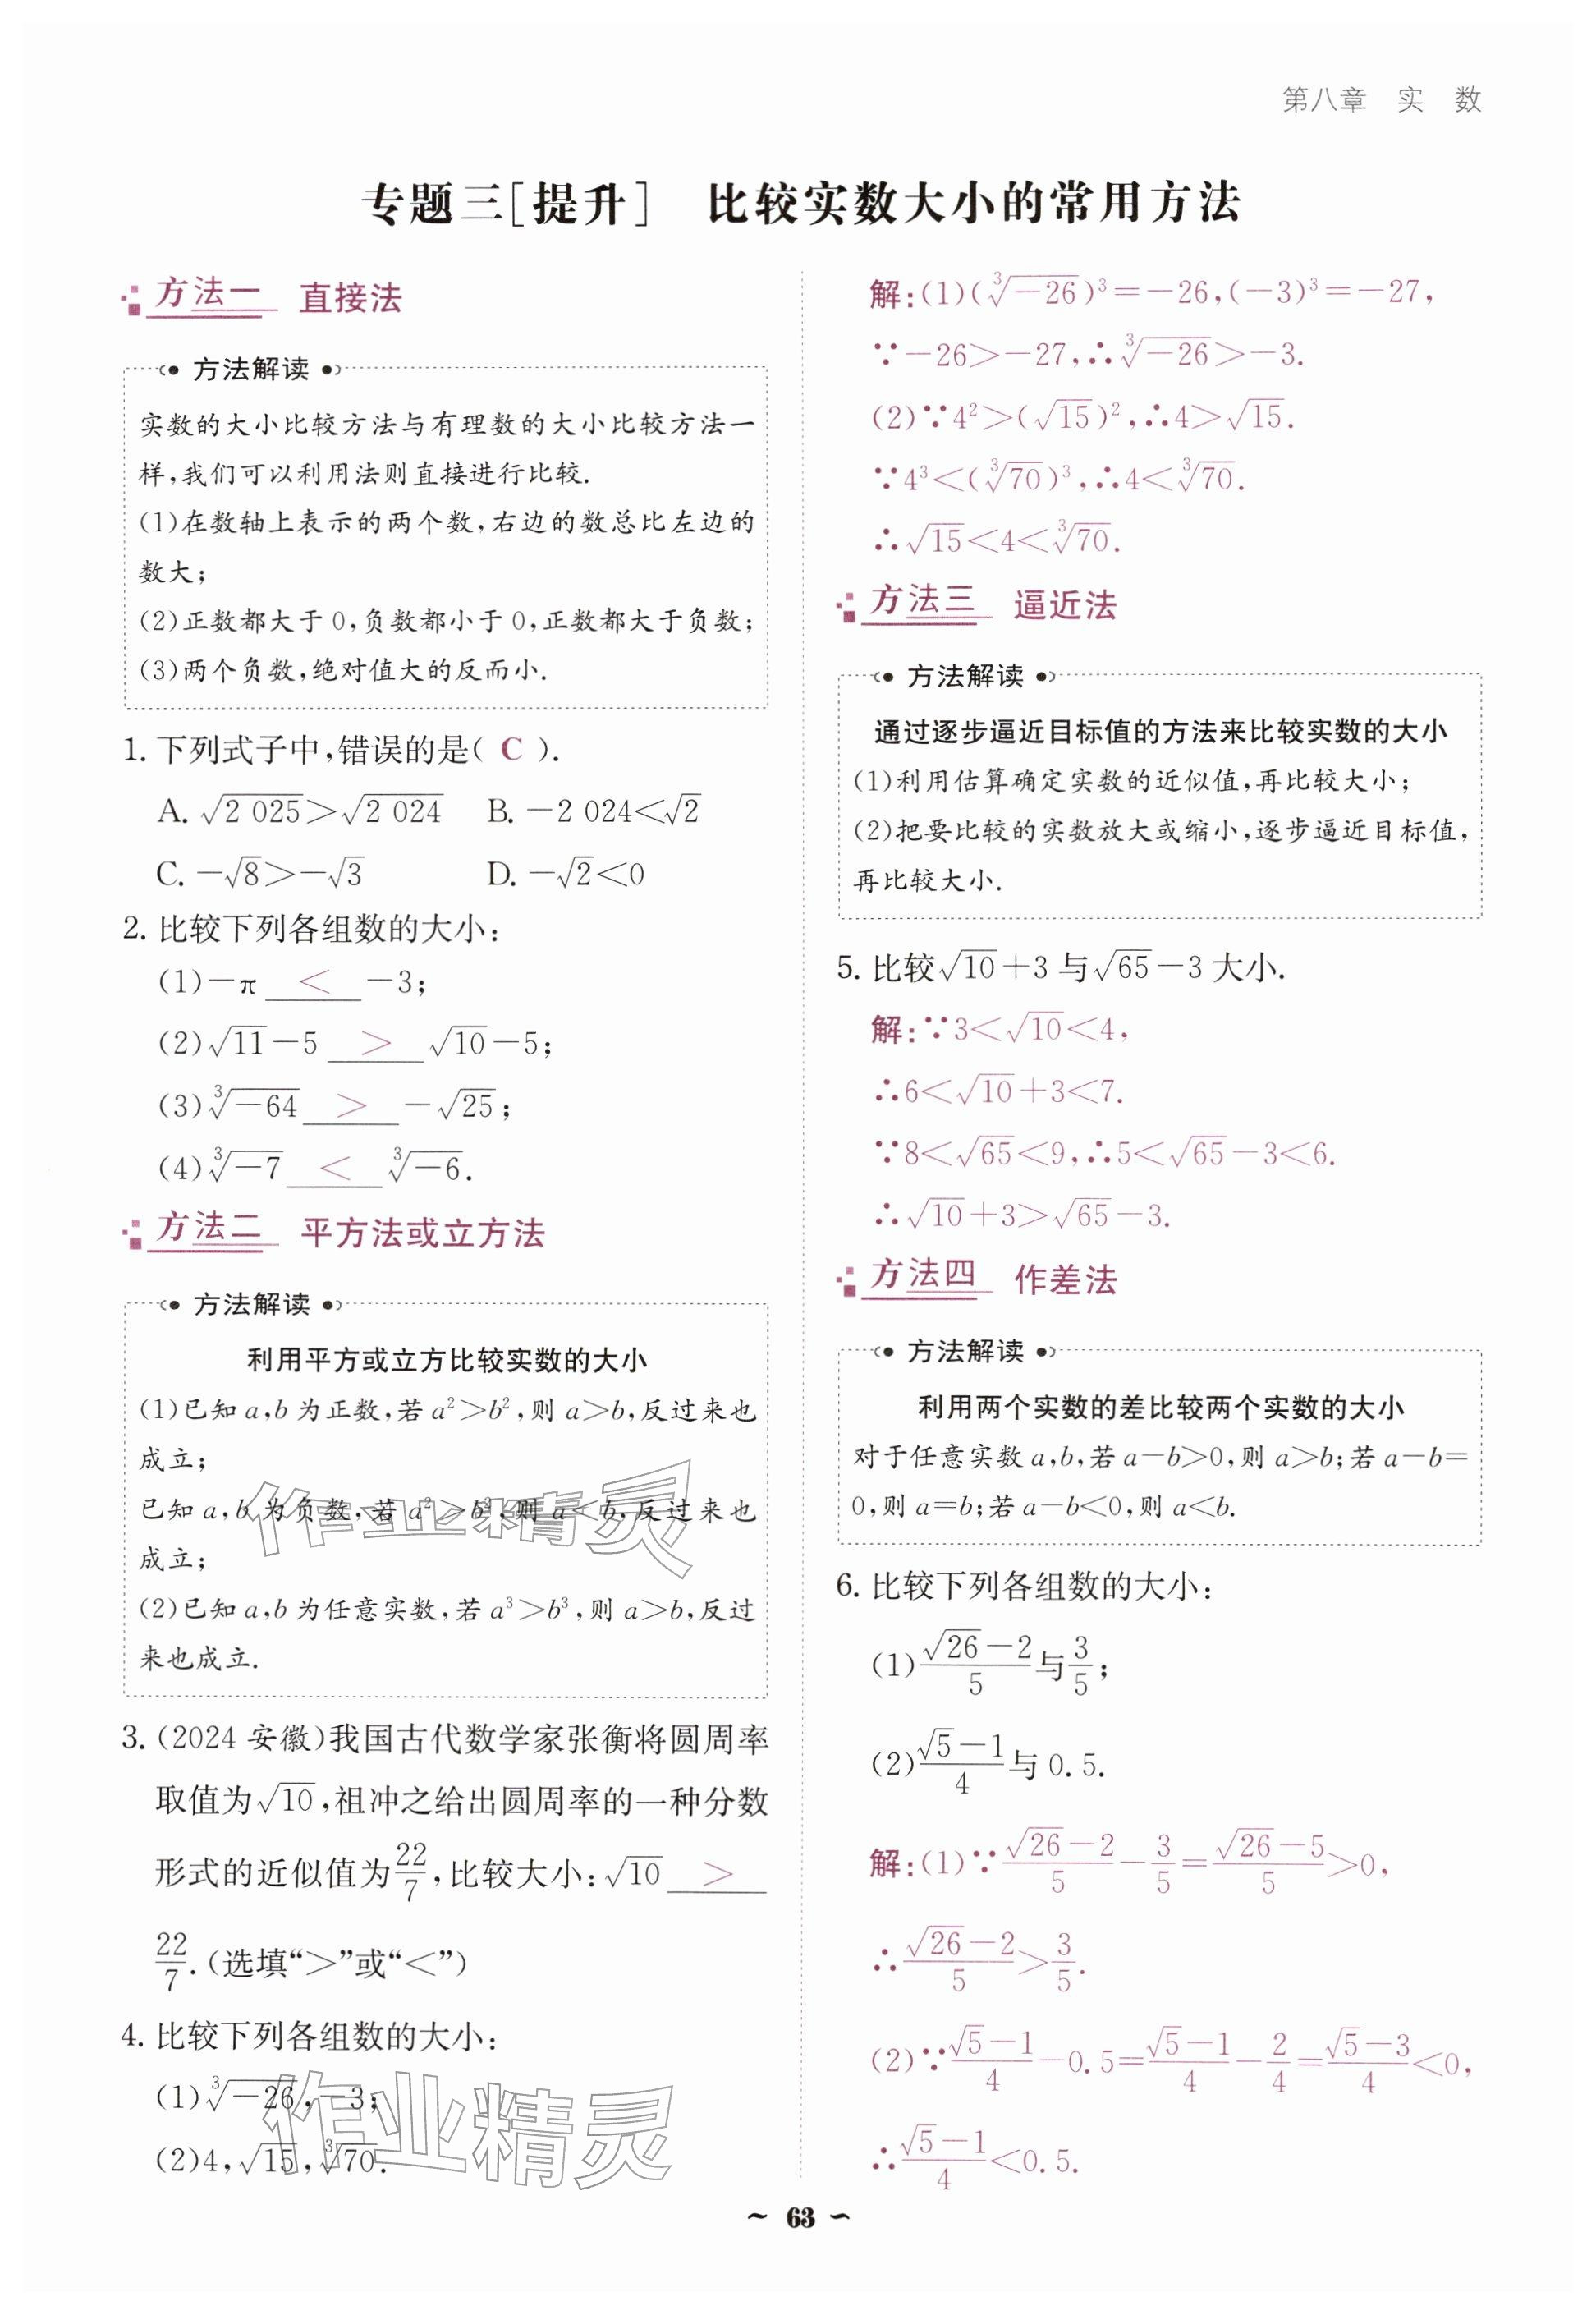 第八章　实　数
专题三[提升]　比较实数大小的常用方法
方法一　直接法
方法解读
实数的大小比较方法与有理数的大小比较方法一
样,我们可以利用法则直接进行比较.
(1)在数轴上表示的两个数,右边的数总比左边的
数大;
(2)正数都大于0,负数都小于0,正数都大于负数;
(3)两个负数,绝对值大的反而小.
1. 下列式子中,错误的是( C ).
A. √2 025>√2 024　B. -2 024<√2
C. -√8>-√3　D. -√2<0
2. 比较下列各组数的大小:
(1)-π < -3;
(2)√11-5 > √10-5;
(3)∛-64 > -√25;
(4)∛-7 < ∛-6.
方法二　平方法或立方法
方法解读
利用平方或立方比较实数的大小
(1)已知a,b为正数,若a²>b²,则a>b,反过来也
成立;
已知a,b为负数,若a²>b²,则a<b,反过来也
成立;
(2)已知a,b为任意实数,若a³>b³,则a>b,反过
来也成立.
3. (2024 安徽)我国古代数学家张衡将圆周率
取值为√10,祖冲之给出圆周率的一种分数
形式的近似值为22/7,比较大小:√10 >
22/7.(选填“>”或“<”)
4. 比较下列各组数的大小:
(1)∛-26,-3;
(2)4,√15,∛70.
解:(1)(∛-26)³=-26,(-3)³=-27,
∵-26>-27,∴∛-26>-3.
(2)∵4²>(√15)²,∴4>√15.
∵4³<(∛70)³,∴4<∛70.
∴√15<4<∛70.
方法三　逼近法
方法解读
通过逐步逼近目标值的方法来比较实数的大小
(1)利用估算确定实数的近似值,再比较大小;
(2)把要比较的实数放大或缩小,逐步逼近目标值,
再比较大小.
5. 比较√10+3与√65-3大小.
解:∵3<√10<4,
∴6<√10+3<7.
∵8<√65<9,∴5<√65-3<6.
∴√10+3>√65-3.
方法四　作差法
方法解读
利用两个实数的差比较两个实数的大小
对于任意实数a,b,若a-b>0,则a>b;若a-b=
0,则a=b;若a-b<0,则a<b.
6. 比较下列各组数的大小:
(1)(√26-2)/5与3/5;
(2)(√5-1)/4与0.5.
解:(1)∵(√26-2)/5-3/5=(√26-5)/5>0,
∴(√26-2)/5>3/5.
(2)∵(√5-1)/4-0.5=(√5-1)/4-2/4=(√5-3)/4<0,
∴(√5-1)/4<0.5.
作业精灵
作业精灵
~ 63 ~